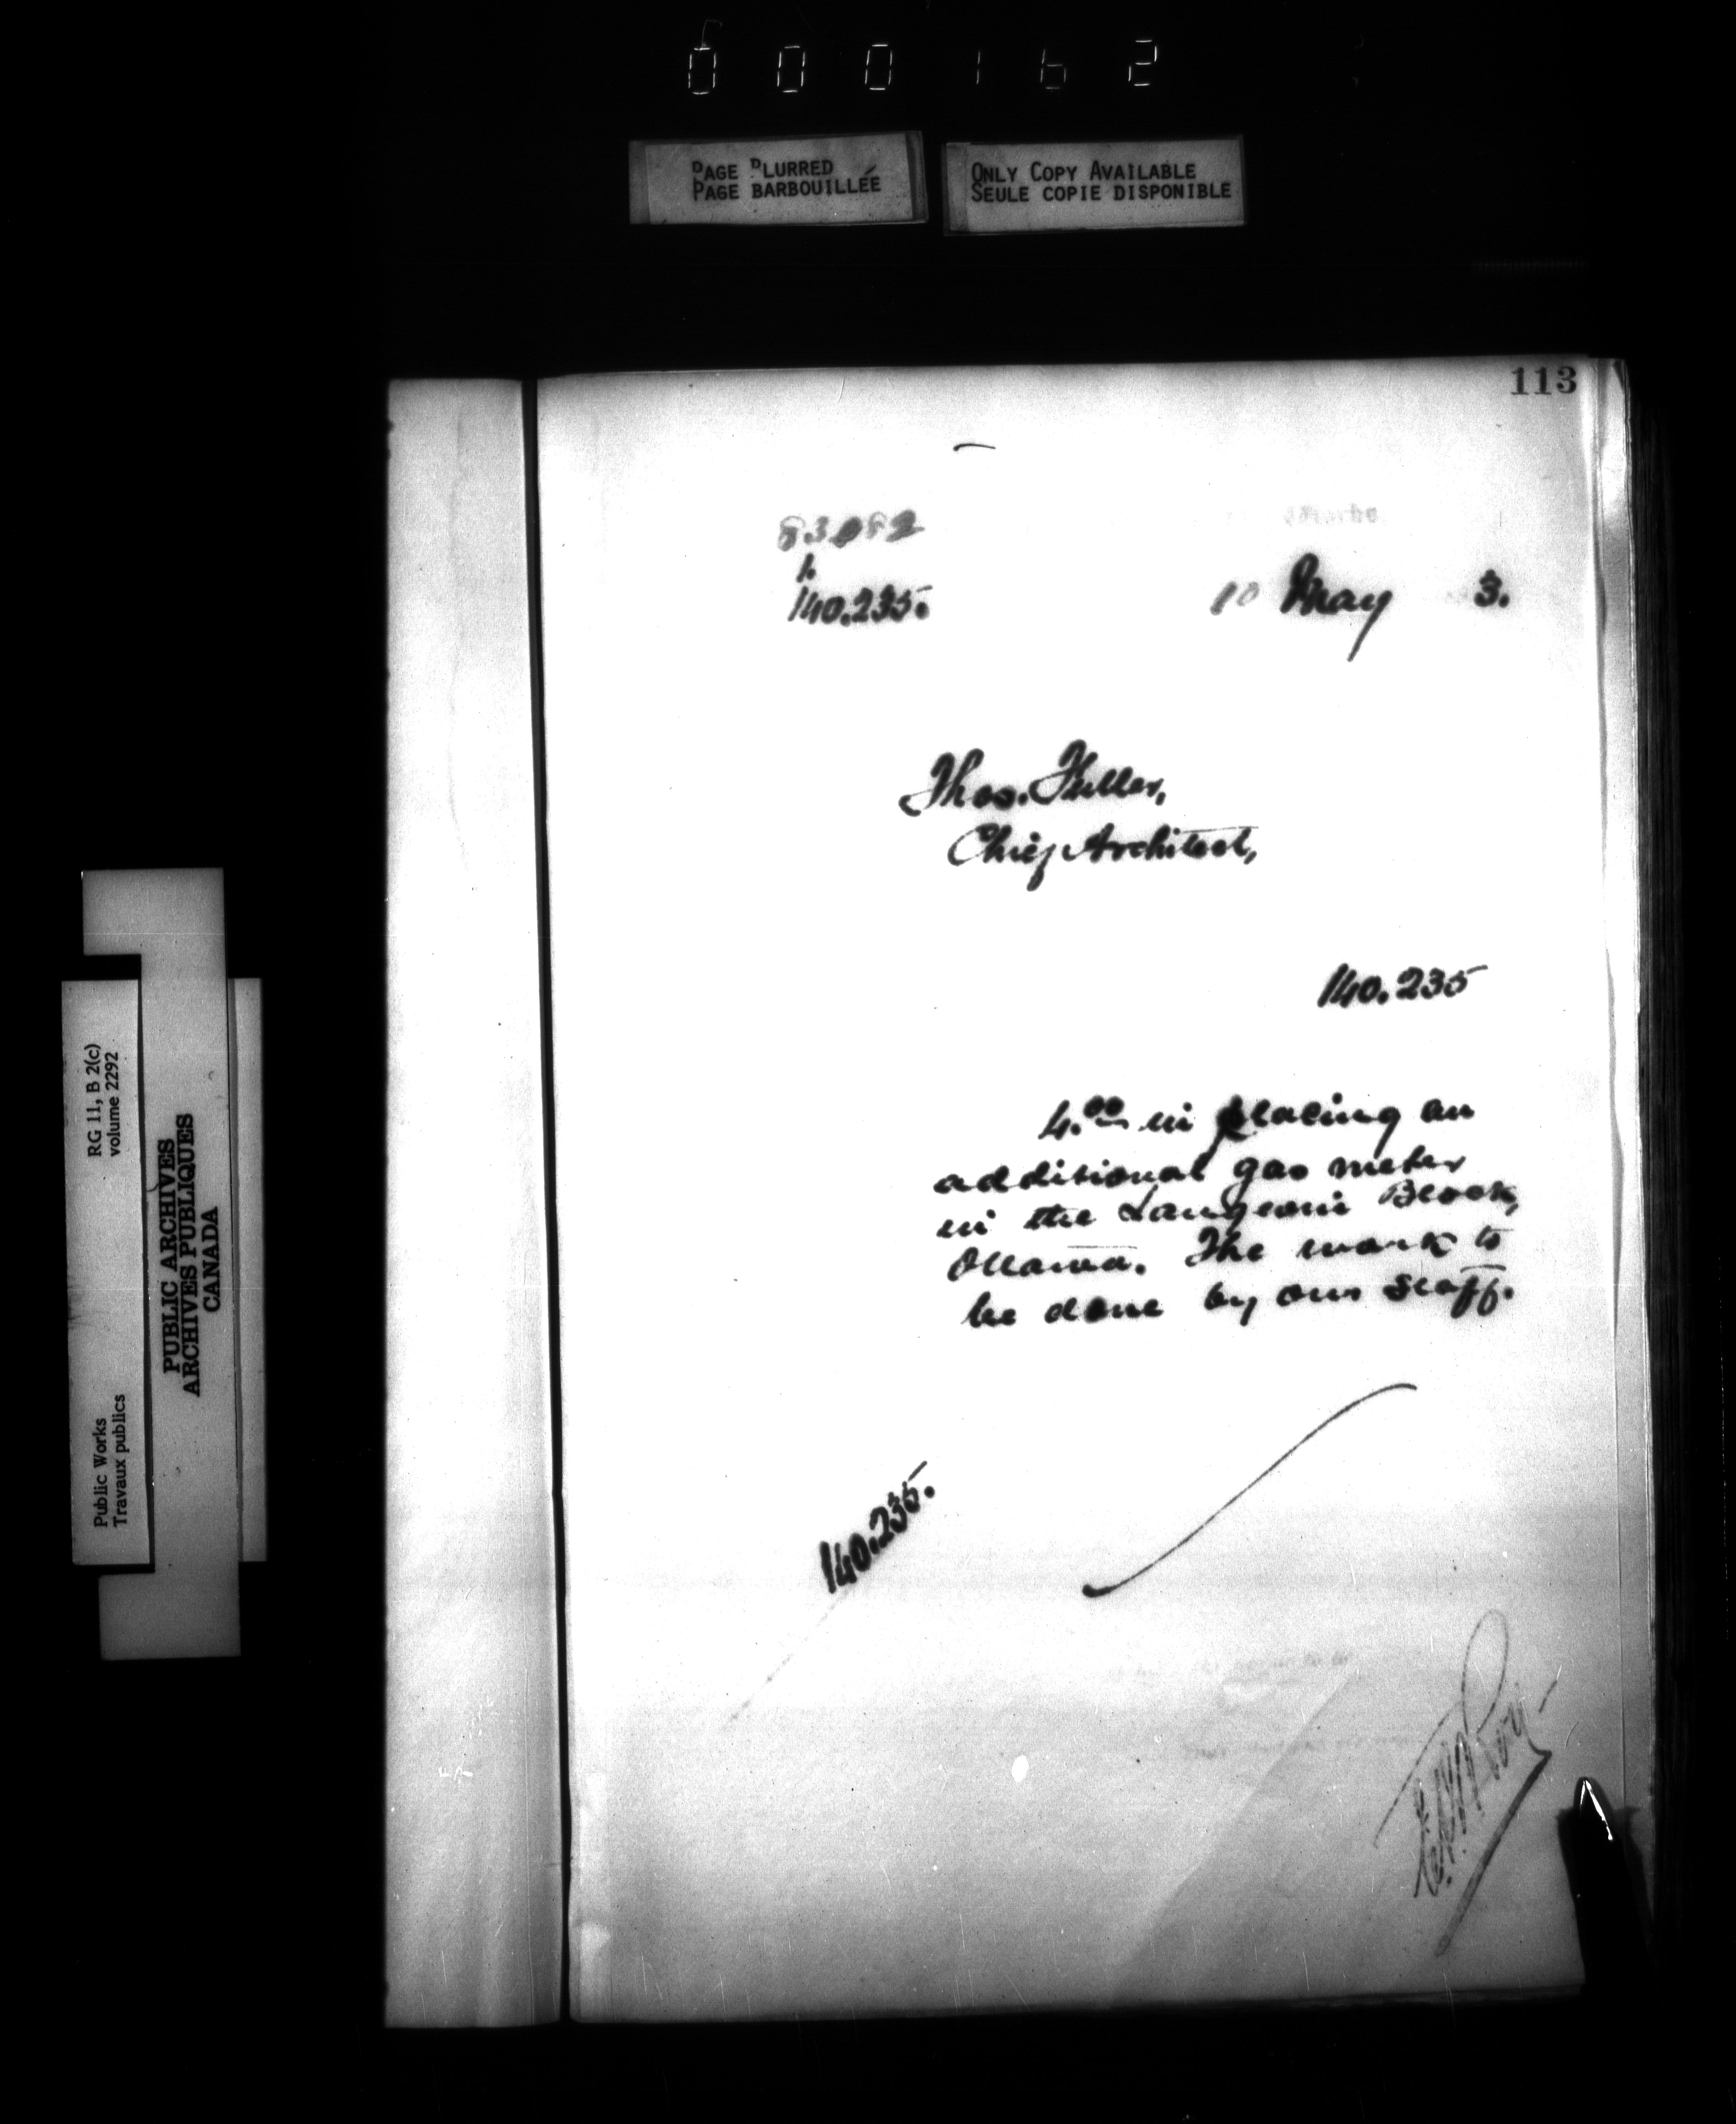 000162
PAGE BLURRED
PAGE BARBOUILLÉE
ONLY COPY AVAILABLE
SEULE COPIE DISPONIBLE
113
83082
1.
140.235.
10 May 3.
Thos. Fuller,
Chief Architect,
140.235
4.00 in placing an
additional gas meter
in the Langevin Block,
Ottawa. The work to
be done by our staff.
140.235.
RG 11, B 2(c)
volume 2292
Public Works
Travaux publics
PUBLIC ARCHIVES
ARCHIVES PUBLIQUES
CANADA